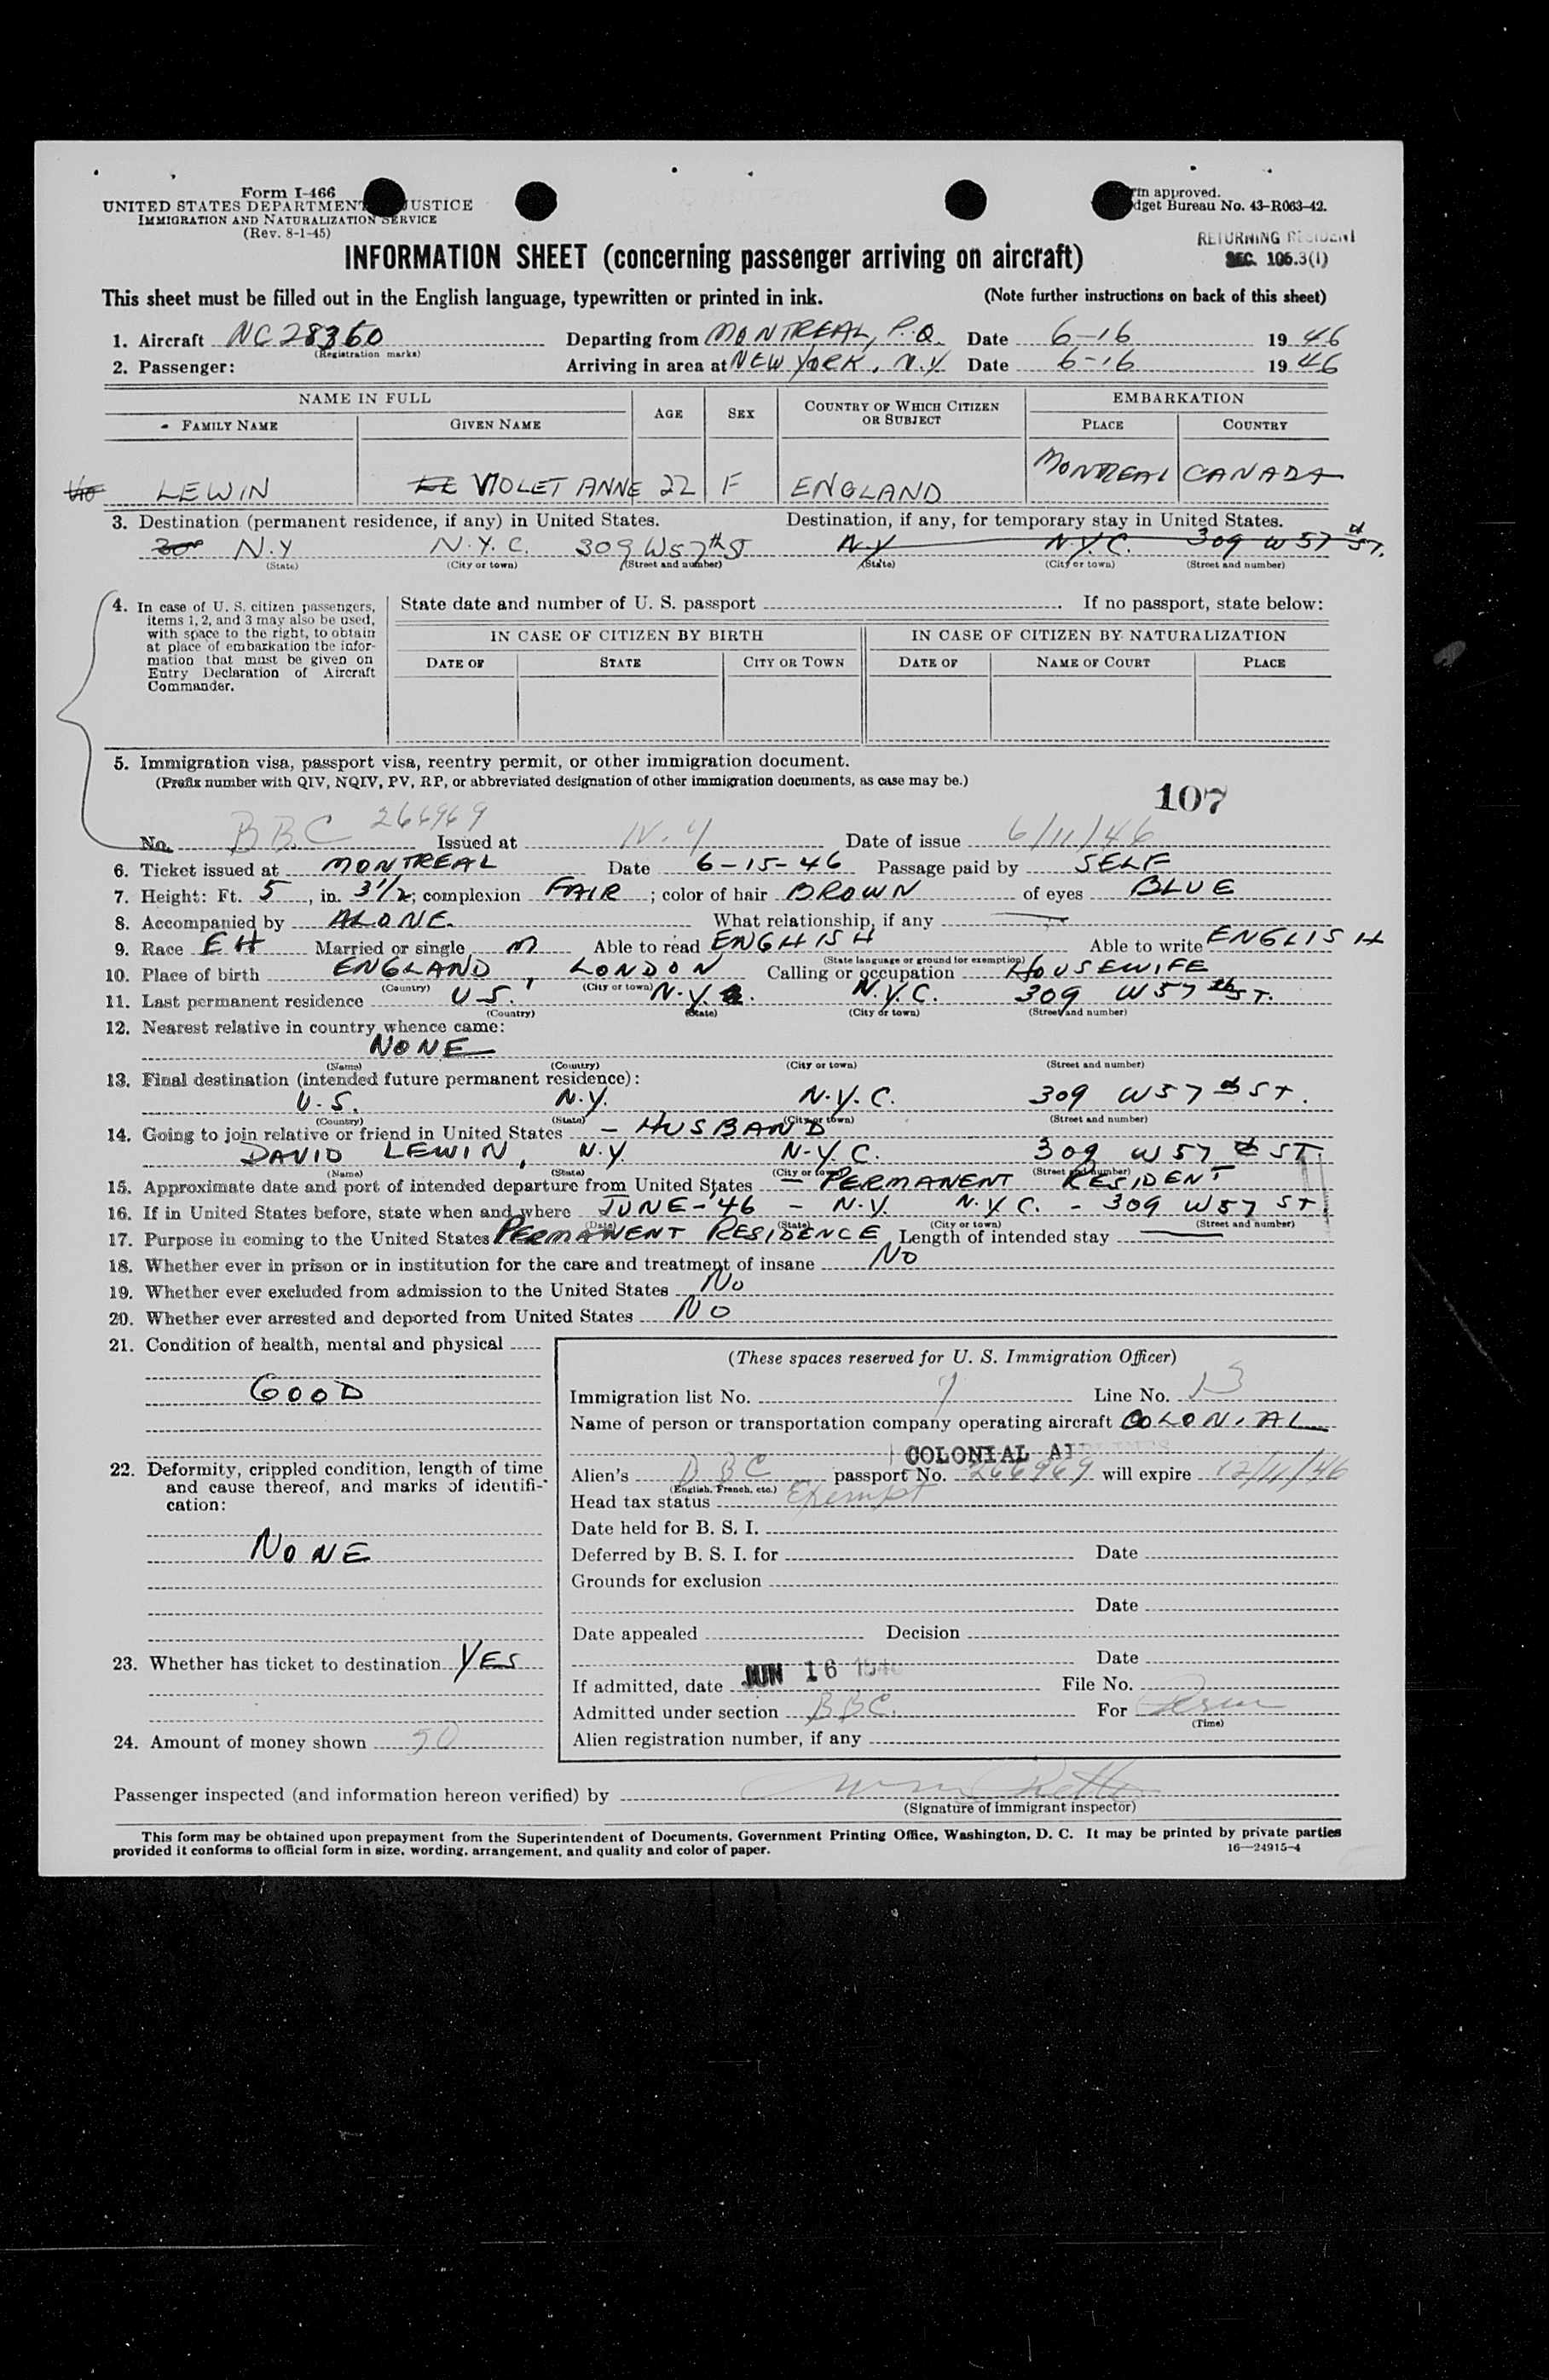 Form I-466
UNITED STATES DEPARTMENT JUSTICE
IMMIGRATION AND NATURALIZATION SERVICE
(Rev. 8-1-45)
approved.
dget Bureau No. 43-R063-42.
RETURNING RESIDENT
SEC. 106.3(1)
INFORMATION SHEET (concerning passenger arriving on aircraft)
This sheet must be filled out in the English language, typewritten or printed in ink. (Note further instructions on back of this sheet)
1. Aircraft NC 28360 Departing from MONTREAL, P.Q. Date 6-16 1946
(Registration marks)
2. Passenger: Arriving in area at NEW YORK, N.Y Date 6-16 1946
NAME IN FULL AGE SEX COUNTRY OF WHICH CITIZEN OR SUBJECT EMBARKATION
FAMILY NAME GIVEN NAME PLACE COUNTRY
Vio LEWIN VIOLET ANNE 22 F ENGLAND MONTREAL CANADA
3. Destination (permanent residence, if any) in United States. Destination, if any, for temporary stay in United States.
309 N.Y N.Y.C. 309 W 57th St N.Y N.Y.C. 309 W 57 St.
(State) (City or town) (Street and number) (State) (City or town) (Street and number)
4. In case of U. S. citizen passengers, items 1, 2, and 3 may also be used, with space to the right, to obtain at place of embarkation the information that must be given on Entry Declaration of Aircraft Commander.
State date and number of U. S. passport If no passport, state below:
IN CASE OF CITIZEN BY BIRTH IN CASE OF CITIZEN BY NATURALIZATION
DATE OF STATE CITY OR TOWN DATE OF NAME OF COURT PLACE
5. Immigration visa, passport visa, reentry permit, or other immigration document.
(Prefix number with QIV, NQIV, PV, RP, or abbreviated designation of other immigration documents, as case may be.)
107
No. BBC 266969 Issued at N.Y Date of issue 6/11/46
6. Ticket issued at MONTREAL Date 6-15-46 Passage paid by SELF
7. Height: Ft. 5, in. 3 1/2; complexion FAIR; color of hair BROWN of eyes BLUE
8. Accompanied by ALONE What relationship, if any —
9. Race EH Married or single M Able to read ENGHISH Able to write ENGLISH
(State language or ground for exemption)
10. Place of birth ENGLAND, LONDON Calling or occupation HOUSEWIFE
(Country) (City or town)
11. Last permanent residence U.S. N.Y. N.Y.C. 309 W 57th ST.
(Country) (State) (City or town) (Street and number)
12. Nearest relative in country whence came:
NONE
(Name) (Country) (City or town) (Street and number)
13. Final destination (intended future permanent residence):
U.S. N.Y. N.Y.C. 309 W 57 St.
(Country) (State) (City or town) (Street and number)
14. Going to join relative or friend in United States - HUSBAND
DAVID LEWIN, N.Y. N-Y.C. 309 W 57 ST
(Name) (State) (City or town) (Street and number)
15. Approximate date and port of intended departure from United States — PERMANENT RESIDENT
16. If in United States before, state when and where JUNE-'46 - N.Y. N.Y.C. - 309 W 57 ST
(Date) (State) (City or town) (Street and number)
17. Purpose in coming to the United States PERMANENT RESIDENCE Length of intended stay —
18. Whether ever in prison or in institution for the care and treatment of insane NO
19. Whether ever excluded from admission to the United States NO
20. Whether ever arrested and deported from United States NO
21. Condition of health, mental and physical
GOOD
22. Deformity, crippled condition, length of time and cause thereof, and marks of identification:
NONE
23. Whether has ticket to destination YES
24. Amount of money shown 50
(These spaces reserved for U. S. Immigration Officer)
Immigration list No. 7 Line No. 13
Name of person or transportation company operating aircraft COLONIAL
COLONIAL AI
Alien's BBC passport No. 266969 will expire 12/11/46
(English, French, etc.)
Head tax status Exempt
Date held for B. S. I.
Deferred by B. S. I. for Date
Grounds for exclusion
Date
Date appealed Decision
Date
If admitted, date JUN 16 1946 File No.
Admitted under section BBC. For Perm
(Time)
Alien registration number, if any
Passenger inspected (and information hereon verified) by
(Signature of immigrant inspector)
This form may be obtained upon prepayment from the Superintendent of Documents, Government Printing Office, Washington, D. C. It may be printed by private parties
provided it conforms to official form in size, wording, arrangement, and quality and color of paper. 16—24915-4